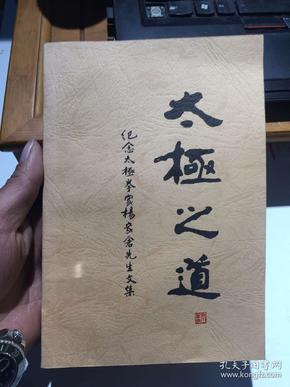 太極之道
纪念太極拳家楊家倉先生文集
孔夫子旧书网